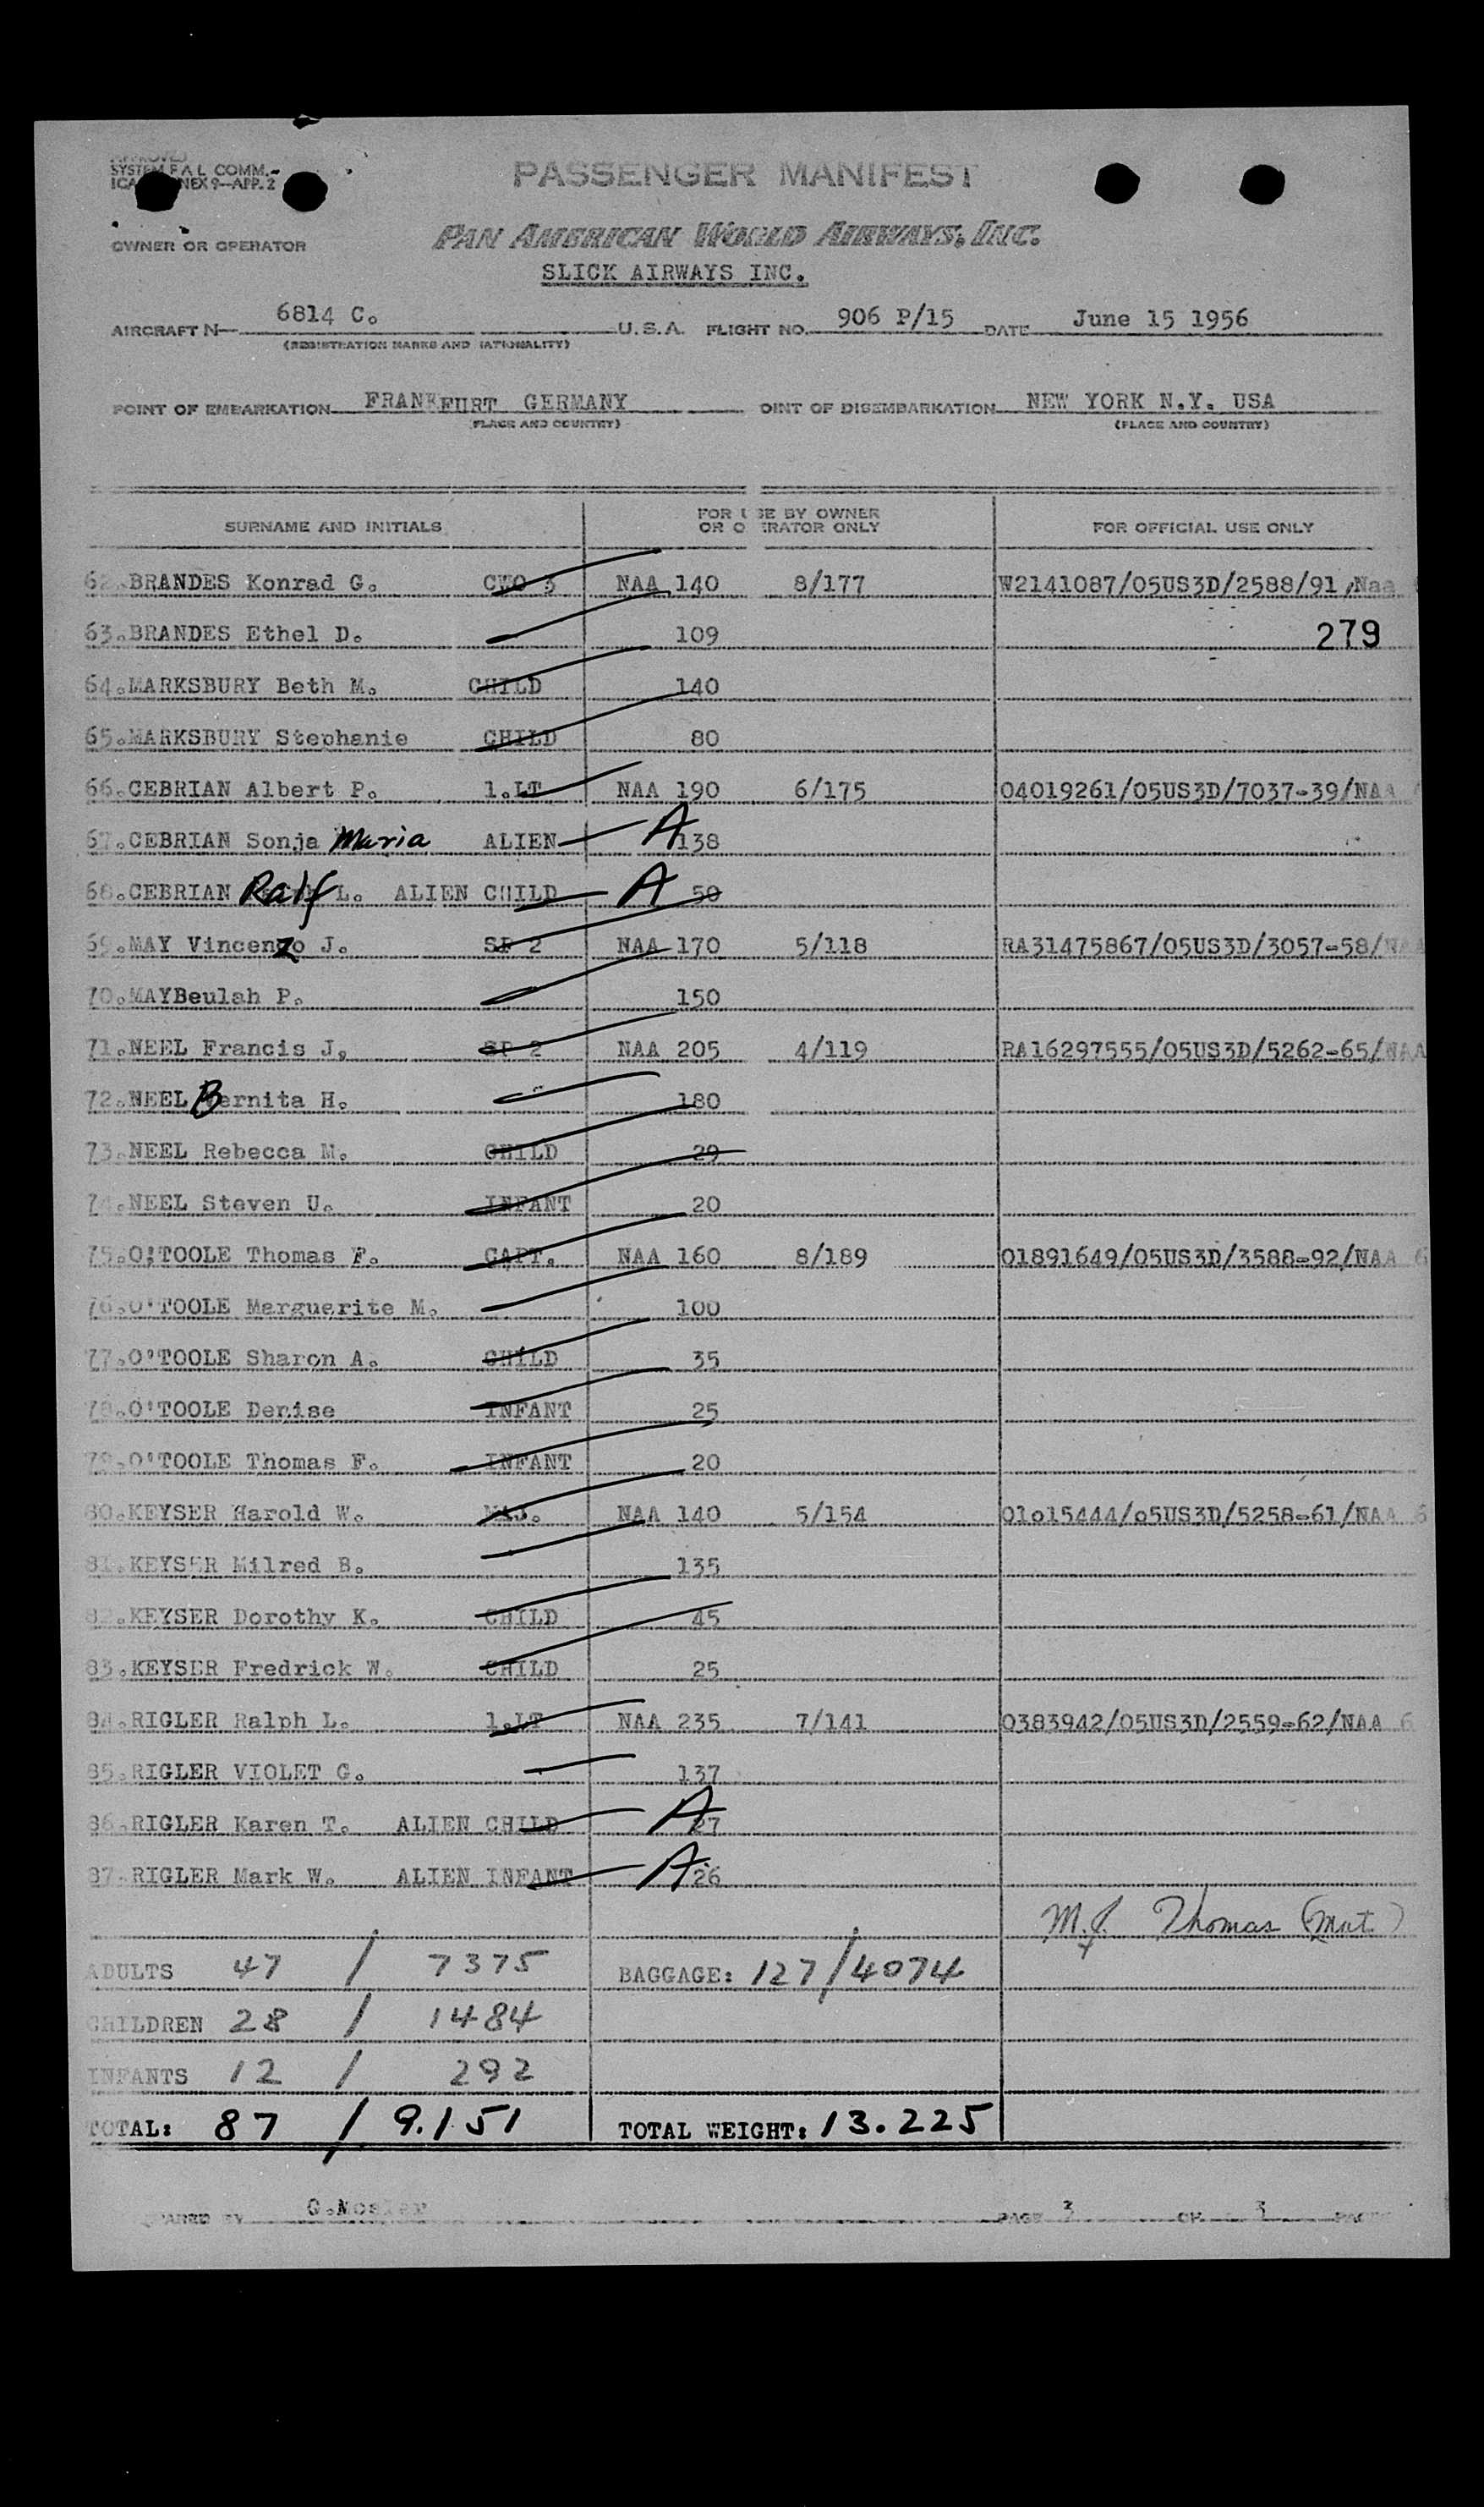 APPROVED
SYSTEM F A L COMM.-
ICA NEX 9—APP. 2
PASSENGER MANIFEST
OWNER OR OPERATOR PAN AMERICAN WORLD AIRWAYS, INC.
SLICK AIRWAYS INC.
AIRCRAFT N— 6814 C. U.S.A. FLIGHT NO. 906 P/15 DATE June 15 1956
(REGISTRATION MARKS AND NATIONALITY)
POINT OF EMBARKATION FRANKFURT GERMANY OINT OF DISEMBARKATION NEW YORK N.Y. USA
(PLACE AND COUNTRY) (PLACE AND COUNTRY)
SURNAME AND INITIALS FOR USE BY OWNER OR OPERATOR ONLY FOR OFFICIAL USE ONLY
62.BRANDES Konrad G. CWO 3 NAA 140 8/177 W2141087/05US3D/2588/91/Naa
63.BRANDES Ethel D. 109 279
64.MARKSBURY Beth M. CHILD 140
65.MARKSBURY Stephanie CHILD 80
66.CEBRIAN Albert P. 1.LT NAA 190 6/175 04019261/05US3D/7037-39/NAA
67.CEBRIAN Sonja Maria ALIEN A 138
68.CEBRIAN Ralf L. ALIEN CHILD A 50
69.MAY Vincenzo J. SP 2 NAA 170 5/118 RA31475867/05US3D/3057-58/NAA
70.MAYBeulah P. 150
71.NEEL Francis J. SP 2 NAA 205 4/119 RA16297555/05US3D/5262-65/NAA
72.NEEL Bernita H. 180
73.NEEL Rebecca M. CHILD 29
74.NEEL Steven U. INFANT 20
75.O'TOOLE Thomas F. CAPT. NAA 160 8/189 01891649/05US3D/3588-92/NAA 6
76.O'TOOLE Marguerite M. 100
77.O'TOOLE Sharon A. CHILD 35
78.O'TOOLE Denise INFANT 25
79.O'TOOLE Thomas F. INFANT 20
80.KEYSER Harold W. MAJ. NAA 140 5/154 01o15444/o5US3D/5258-61/NAA 6
81.KEYSER Milred B. 135
82.KEYSER Dorothy K. CHILD 45
83.KEYSER Fredrick W. CHILD 25
84.RIGLER Ralph L. 1.LT NAA 235 7/141 0383942/05US3D/2559-62/NAA 6
85.RIGLER VIOLET G. 137
86.RIGLER Karen T. ALIEN CHILD A 27
87.RIGLER Mark W. ALIEN INFANT A 26
M.J. Thomas (Mat.)
ADULTS 47 / 7375 BAGGAGE: 127/4074
CHILDREN 28 / 1484
INFANTS 12 / 292
TOTAL: 87 / 9.151 TOTAL WEIGHT: 13.225
PREPARED BY PAGE 3 OF 3 PAGES